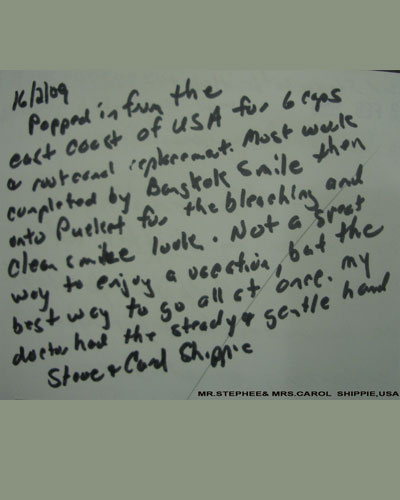 16/2/09
Popped in from the
east coast of USA for 6 caps
a root canal replacement. Most work
completed by Bangkok Smile then
onto Pucket for the bleaching and
clean smile look. Not a great
way to enjoy a vacation, but the
best way to go all at once. My
doctor had the steady & gentle hand
Steve & Carol Shippie
MR.STEPHEE& MRS.CAROL SHIPPIE,USA